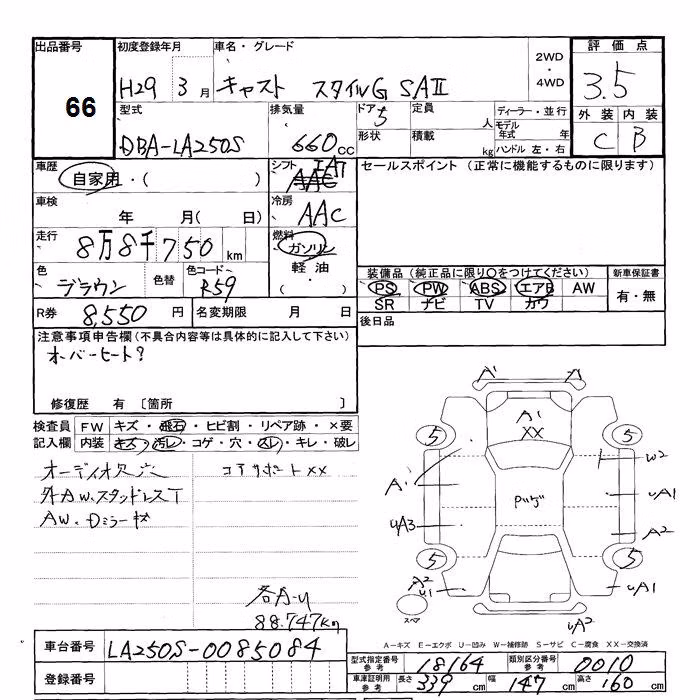 出品番号 初度登録年月 車名・グレード 2WD・4WD 評価点
66 H29 3月 キャスト スタイルG SAⅡ 3.5
型式 排気量 ドア 5 定員 人 ディーラー・並行 外装 内装
DBA-LA250S 660cc 形状 積載 kg モデル年式 年 ハンドル 左・右 C B
車歴 自家用・( ) シフト AAC IAT セールスポイント (正常に機能するものに限ります)
車検 年 月( 日) 冷房 AAC
走行 8万8千750km 燃料 ガソリン 軽油・( )
色 ブラウン 色替 色コード R59
装備品 (純正品に限り○をつけてください) 新車保証書
PS PW ABS エアB AW 有・無
SR ナビ TV カワ
R券 8,550円 名変期限 月 日 後日品
注意事項申告欄 (不具合内容等は具体的に記入して下さい)
オーバーヒート?
修復歴 有 〔箇所 〕
検査員 FW キズ・飛石・ヒビ割・リペア跡・×要
記入欄 内装 キズ・汚レ・コゲ・穴・スレ・キレ・破レ
オーディオ欠 穴 コアサポートXX
外AW、スタッドレスT
AW、Dミラー
各A-U
88.747km
A' A'
A'
XX
5 5
W2
A' Pいげ UA1
UA3 A2
5 5
A2
U1 UA1
スペア UA2
A-キズ E-エクボ U-凹み W-補修跡 S-サビ C-腐食 XX-交換済
車台番号 LA250S-0085084
登録番号
型式指定番号 参考 18164 類別区分番号 参考 0010
車庫証明用 参考 長さ 339cm 幅 147cm 高さ 160cm